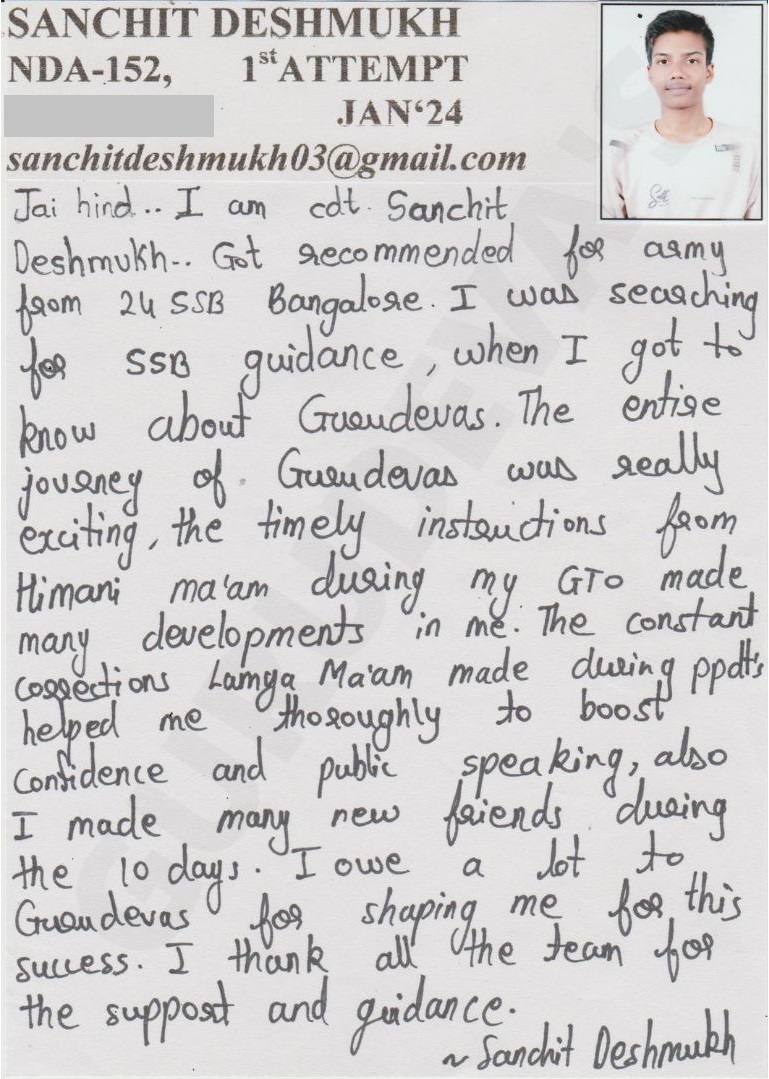 SANCHIT DESHMUKH
NDA-152, 1st ATTEMPT
JAN‘24
sanchitdeshmukh03@gmail.com
Jai hind.. I am cdt. Sanchit
Deshmukh.. Got recommended for army
from 24 SSB Bangalore. I was searching
for SSB guidance, when I got to
know about Gurudevas. The entire
journey of Gurudevas was really
exciting, the timely instructions from
Himani ma'am during my GTO made
many developments in me. The constant
corrections Lamya Ma'am made during ppdt's
helped me thoroughly to boost
confidence and public speaking, also
I made many new friends during
the 10 days. I owe a lot to
Gurudevas for shaping me for this
success. I thank all the team for
the support and guidance.
~ Sanchit Deshmukh